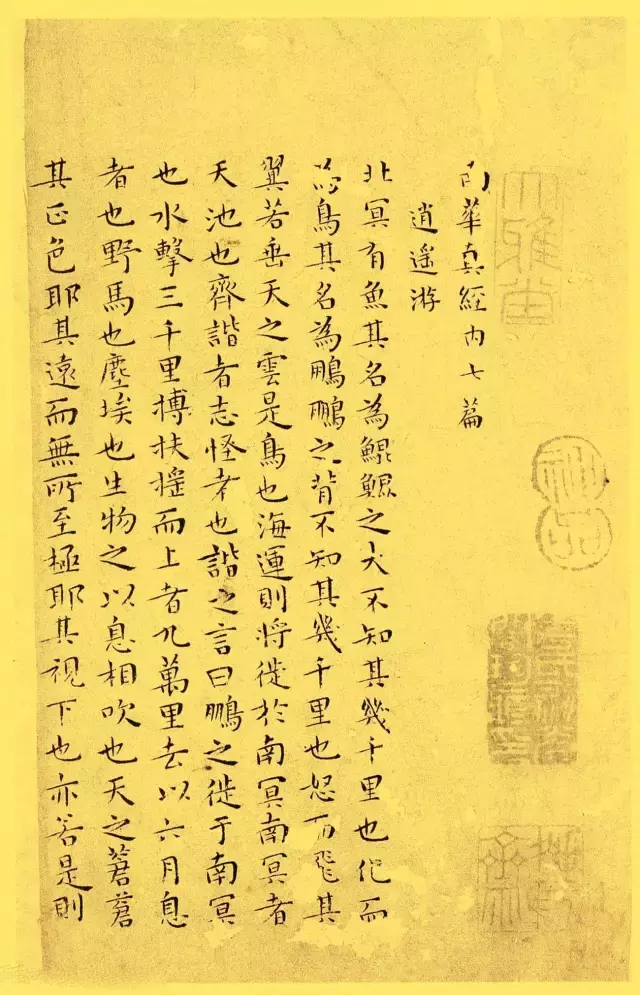 大雅堂
神品
南華真經内七篇
逍遥游
北冥有魚其名為鯤鯤之大不知其幾千里也化而
為鳥其名為鵬鵬之背不知其幾千里也怒而飛其
翼若垂天之雲是鳥也海運則將徙於南冥南冥者
天池也齊諧者志怪者也諧之言曰鵬之徙于南冥
也水擊三千里摶扶摇而上者九萬里去以六月息
者也野馬也塵埃也生物之以息相吹也天之蒼蒼
其正色耶其遠而無所至極耶其視下也亦若是則